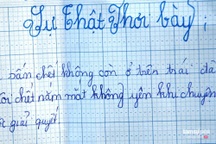 Sự Thật Phơi bày :
bắn chết không còn ở trên trái đấ
tôi chết nắm mắt không yên khi chuyện
giải quyết